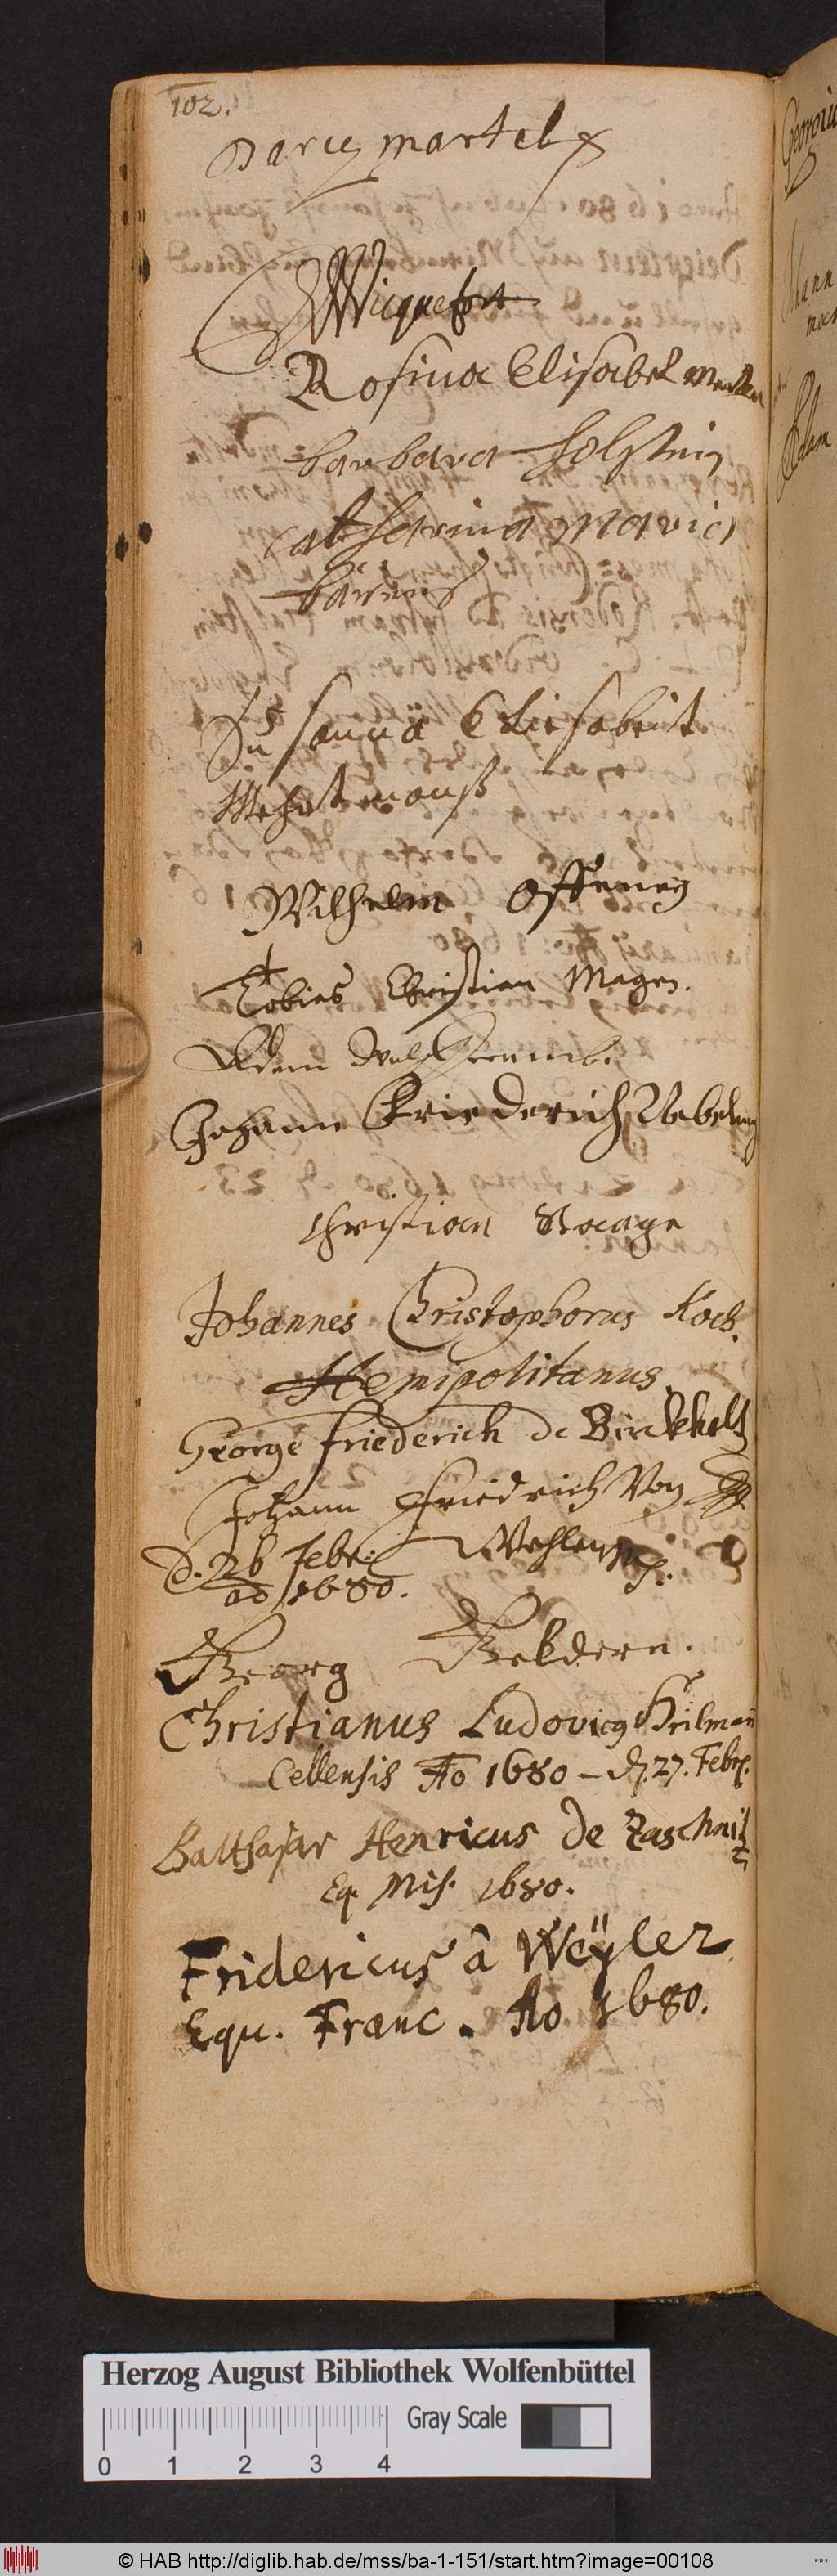 102.
Darcy martel
Wicquefort
Rosina Elisabet
barbara Holstein
Catharina Maria
bärens
Susannä Eliesabeit
Wilhelm Offeney
Tobias Christian Mages.
Adam
Johann Friederich Nebelung
Christian Bocage
Johannes Christophorus Koch.
Hemipolitanus
George friederich de Birckholtz
Johann Friedrich Von
Wehlen
d. 26 febr:
ao 1680.
Georg Geldern.
Christianus Ludovicq Heilman
Cellensis Ao 1680 – d. 27. Febr.
Balthasar Henricus de Zaschnitz
Eq. Mis. 1680.
Fridericus â Weÿler
Equ. Franc. Ao 1680.
Herzog August Bibliothek Wolfenbüttel
Gray Scale
0 1 2 3 4
© HAB http://diglib.hab.de/mss/ba-1-151/start.htm?image=00108